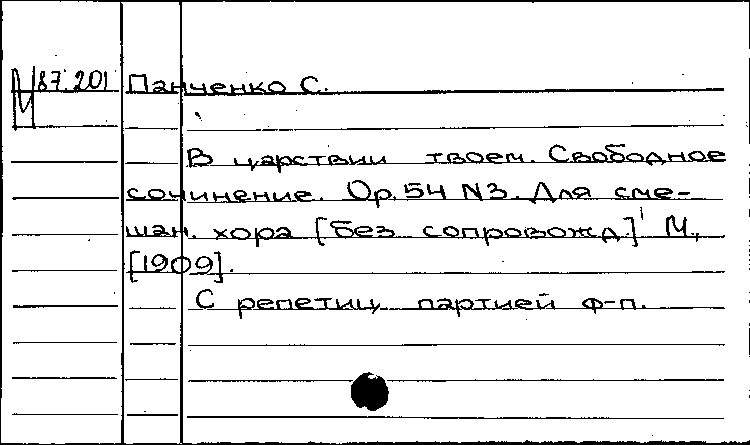 М 87.201 Панченко С.
В царствии твоем. Свободное
сочинение. Op. 54 N3. Для сме-
шан. хора [без сопровожд.] М.,
[1909].
С репетиц. партией ф-п.